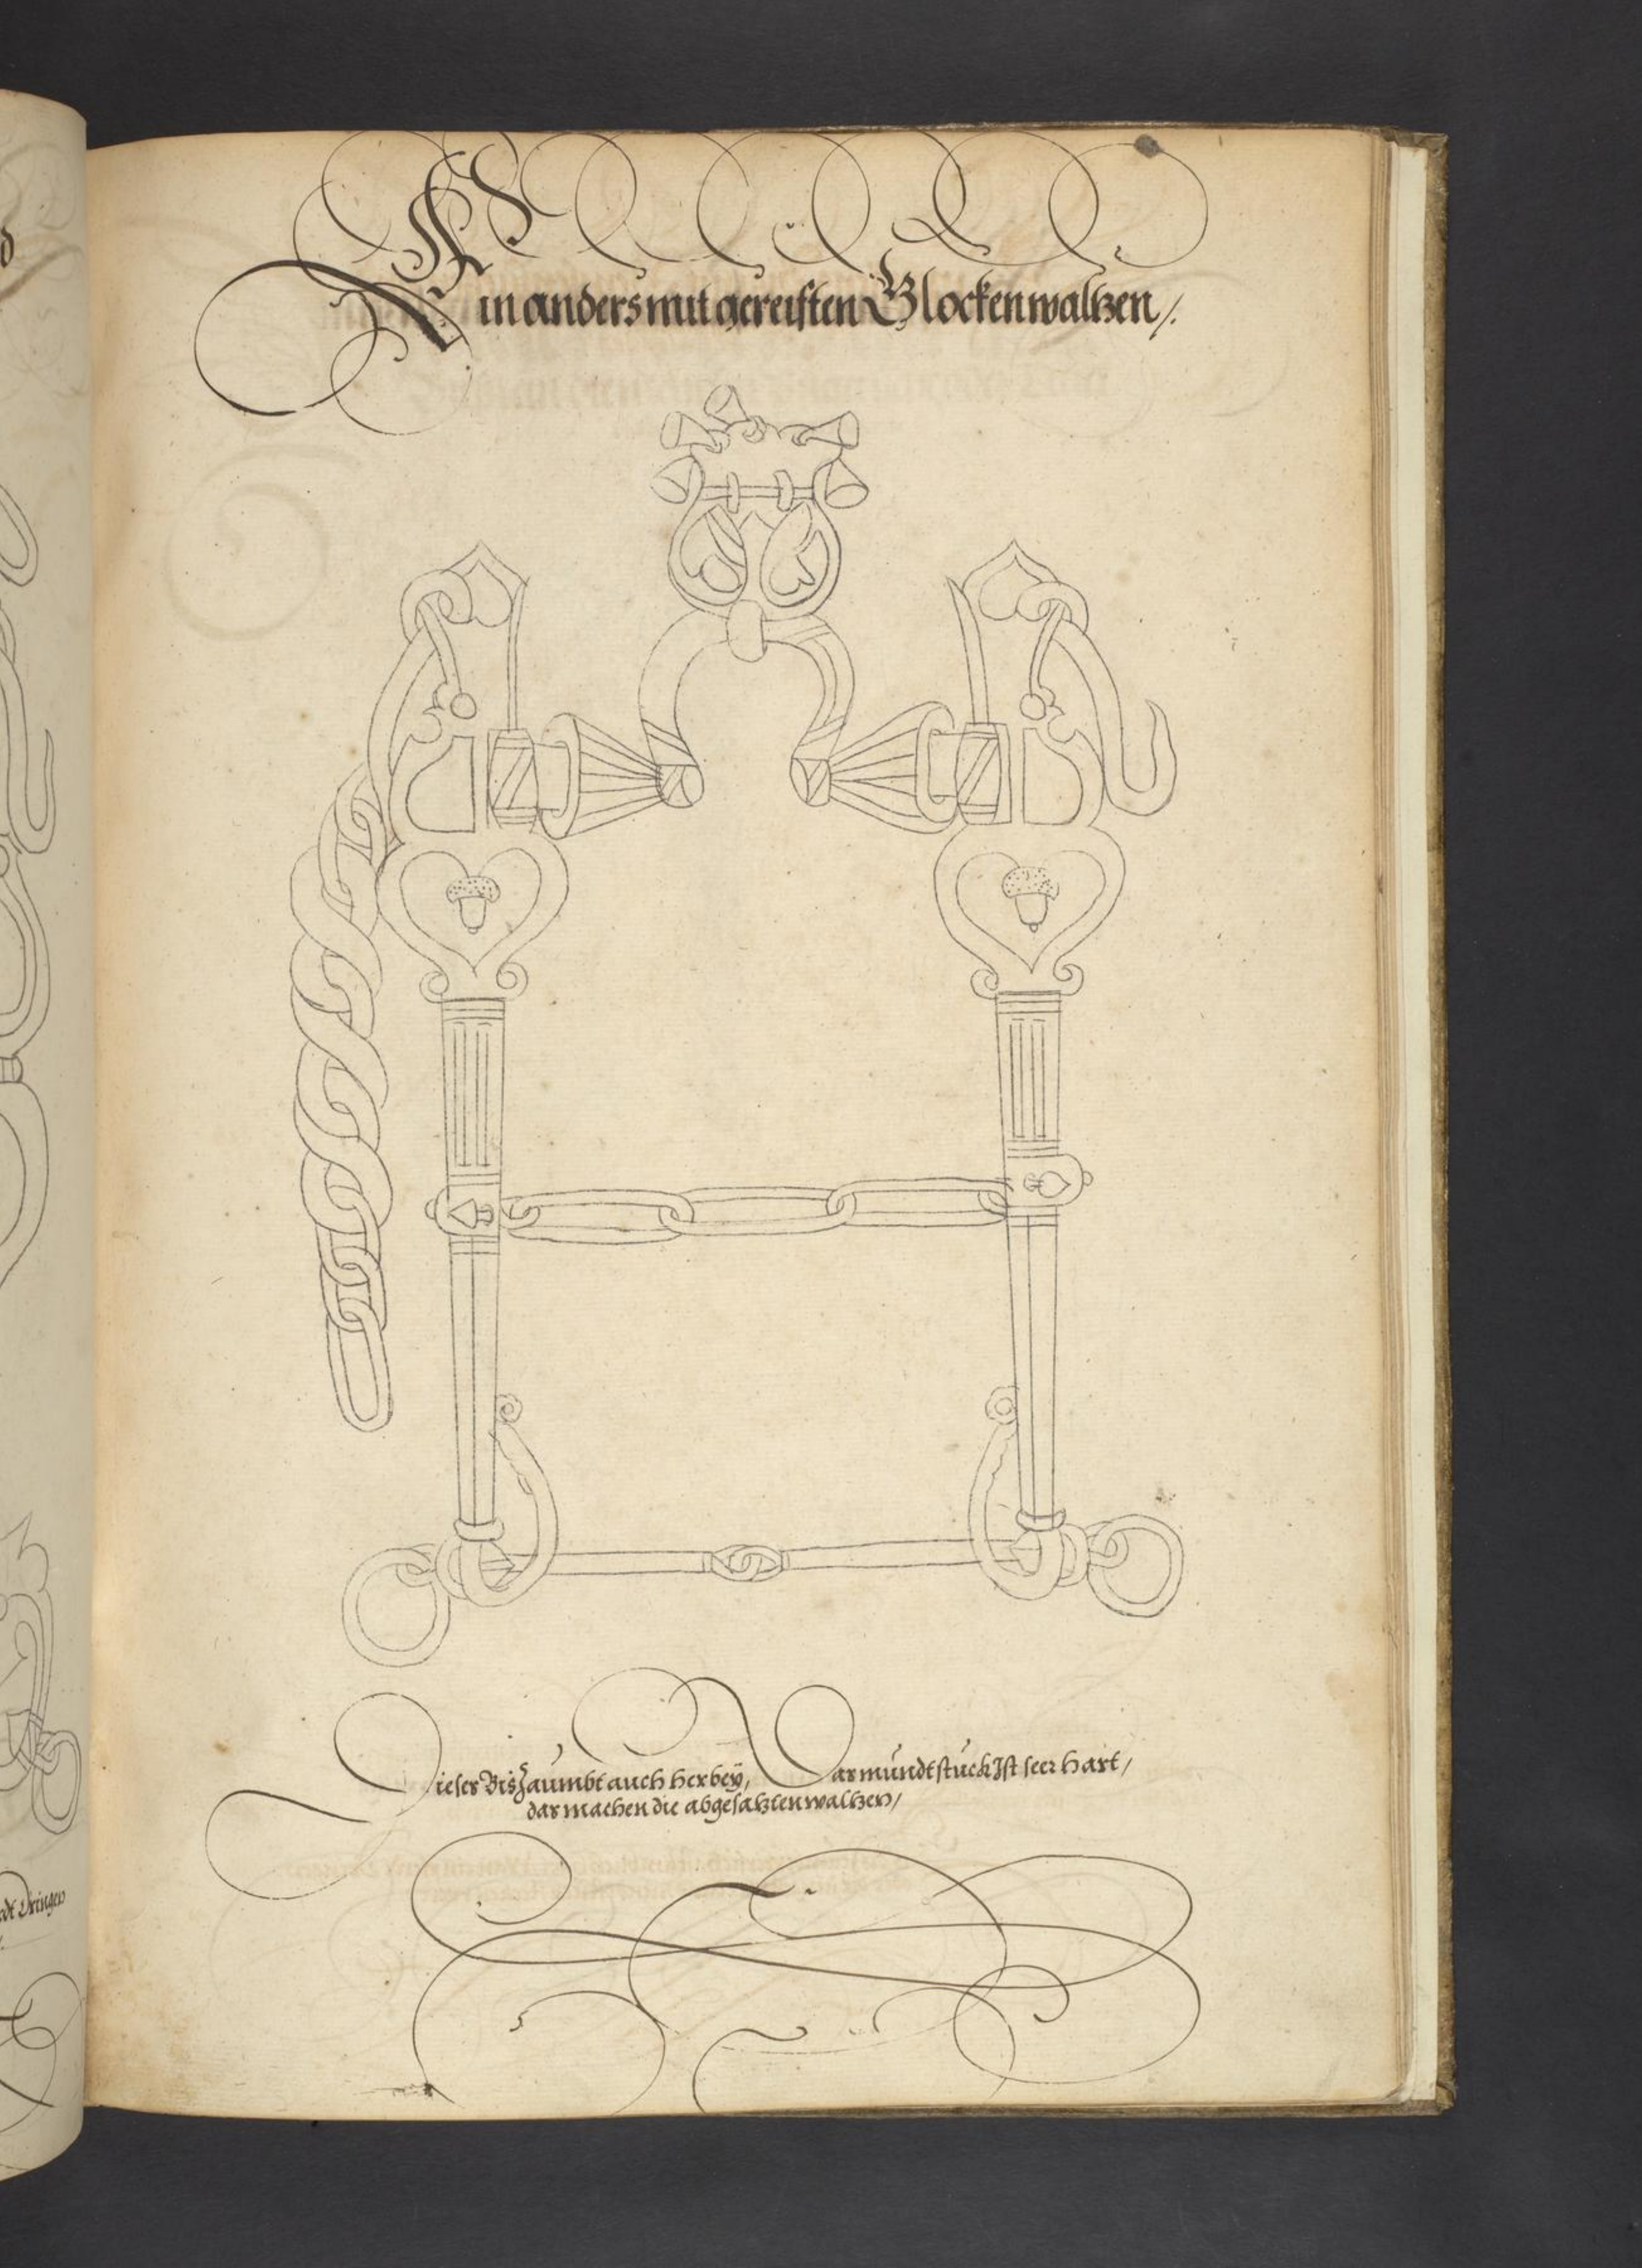 Ein anders mit gereiften Glockenwaltzen /.
Dieser Bis Zaumbt auch herbeÿ, Das mundtstuckh Ist seer hart /
das machen die abgesatzten waltzen /
dringen